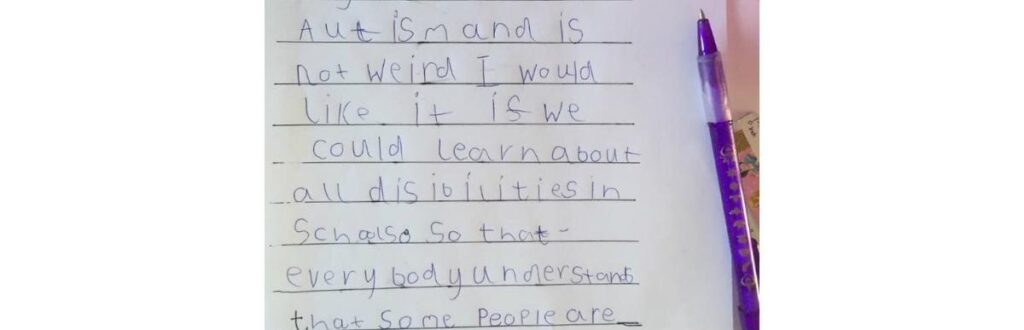 Autism and is
not weird I would
like it if we
could learn about
all disibilities in
so that -
everybody understands
that some People are